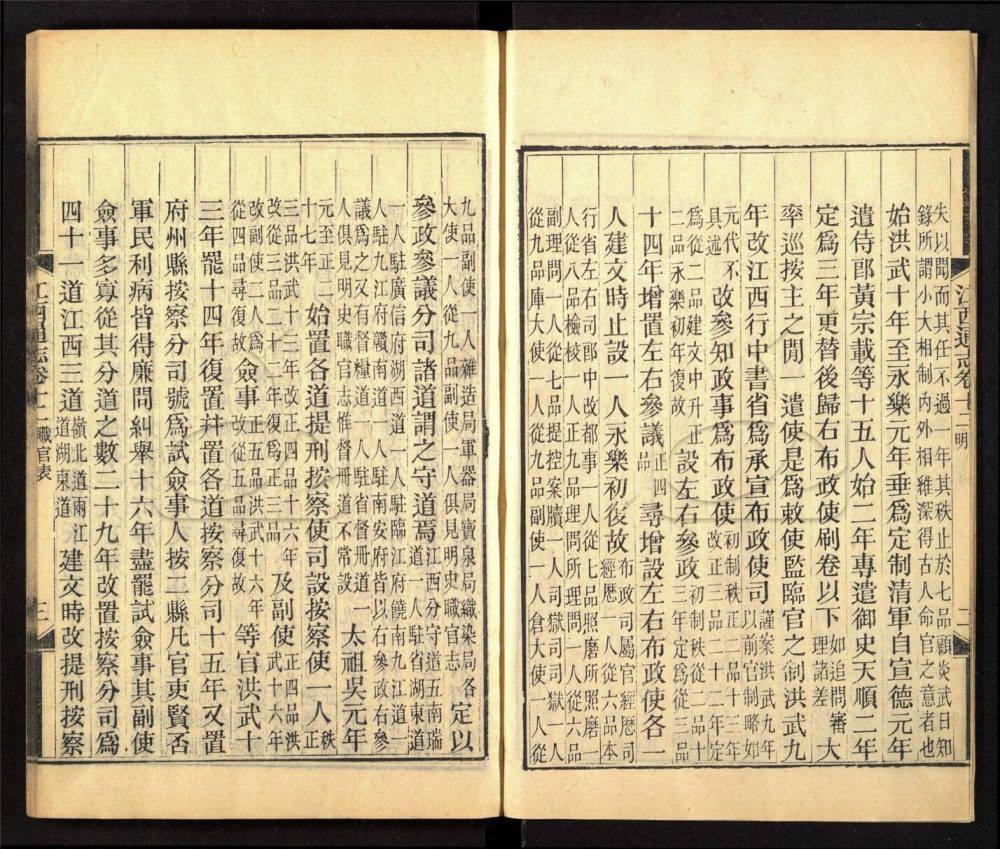 失以聞而其任不過一年其秩止於七品顧炎武日知
錄所謂小大相制內外相維深得古人命官之意者也
始洪武十年至永樂元年垂爲定制清軍自宣德元年
遣侍郎黃宗載等十五人始二年專遣御史天順二年
定爲三年更替後歸右布政使刷卷以下如追問審
理諸差大
率巡按主之閒一遣使是爲敕使監臨官之制洪武九
年改江西行中書省爲承宣布政使司謹案洪武九年
以前官制略如
元代不
具述改參知政事爲布政使初制秩正二品十三年
改正三品二十二年定
爲從二品建
二品永樂初年復故設左右參政初制秩從二品十
三年定爲從三品
十四年增置左右參議正四
品尋增設左右布政使各一
人建文時止設一人永樂初復故布政司屬官經歷司
經歷一人從六品本
行省左右司郎中改都事一人從七品照磨所照磨一
人從八品檢校一人正九品理問所理問一人從六品
副理問一人從七品提控案牘一人司獄司司獄一人
從九品庫大使一人從九品副使一人倉大使一人從
江西通志卷十二 明
二
九品副使一人雜造局軍器局寶泉局織染局各
大使一人從九品副使一人俱見明史職官志定以
參政參議分司諸道謂之守道焉江西分守道五南瑞
道一人駐省湖東道
一人駐廣信府湖西道一人駐臨江府饒南九江道一
人駐九江府贛南道一人駐南安府皆以右參政右參
議爲之又有督糧道一人駐省督冊道一
人俱見明史職官志惟督冊道不常設太祖吳元年
元至正二
十七年始置各道提刑按察使司設按察使一人秩
正
三品洪武十三年改正四品十六年
改從三品二十二年復爲正三品及副使正四品洪
武十六年
改副使二人爲
從四品尋復故僉事改初制正五品洪武十六年
從五品尋復故等官洪武十
三年罷十四年復置幷置各道按察分司十五年又置
府州縣按察分司號爲試僉事人按二縣凡官吏賢否
軍民利病皆得廉問糾舉十六年盡罷試僉事其副使
僉事多寡從其分道之數二十九年改置按察分司爲
四十一道江西三道嶺北道兩江
道湖東道建文時改提刑按察
江西通志卷十二 職官表
三